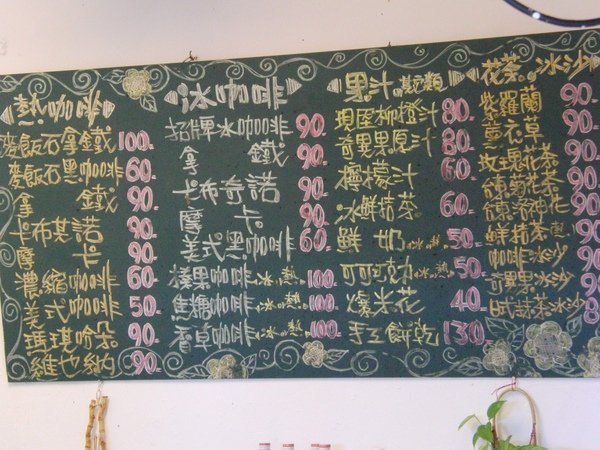 熱咖啡
麥飯石拿鐵 100.
麥飯石黑咖啡 60.
拿鐵 90.
卡布其諾 90.
摩卡 90.
濃縮咖啡 60.
美式咖啡 50.
瑪琪哈朵 90.
維也納 90.
冰咖啡
招牌冰咖啡 90.
拿鐵 90.
卡布奇諾 90.
摩卡 90.
美式黑咖啡 60.
榛果咖啡冰.熱. 100.
焦糖咖啡冰.熱. 100.
香草咖啡冰.熱. 100.
果汁.其它類
現压柳橙汁 80.
奇異果原汁 80.
檸檬汁 60.
冰鮮抹茶 60.
鮮奶冰.熱. 50.
可可亞冰.熱. 50.
爆米花 40.
手工餅乾 130.
花茶.冰沙
紫羅蘭 90.
薰衣草 90.
玫瑰花茶 90.
台東菊花茶 90.
台東洛神花 90.
鮮抹茶
咖啡冰沙
奇異果冰沙
日式抹茶冰沙